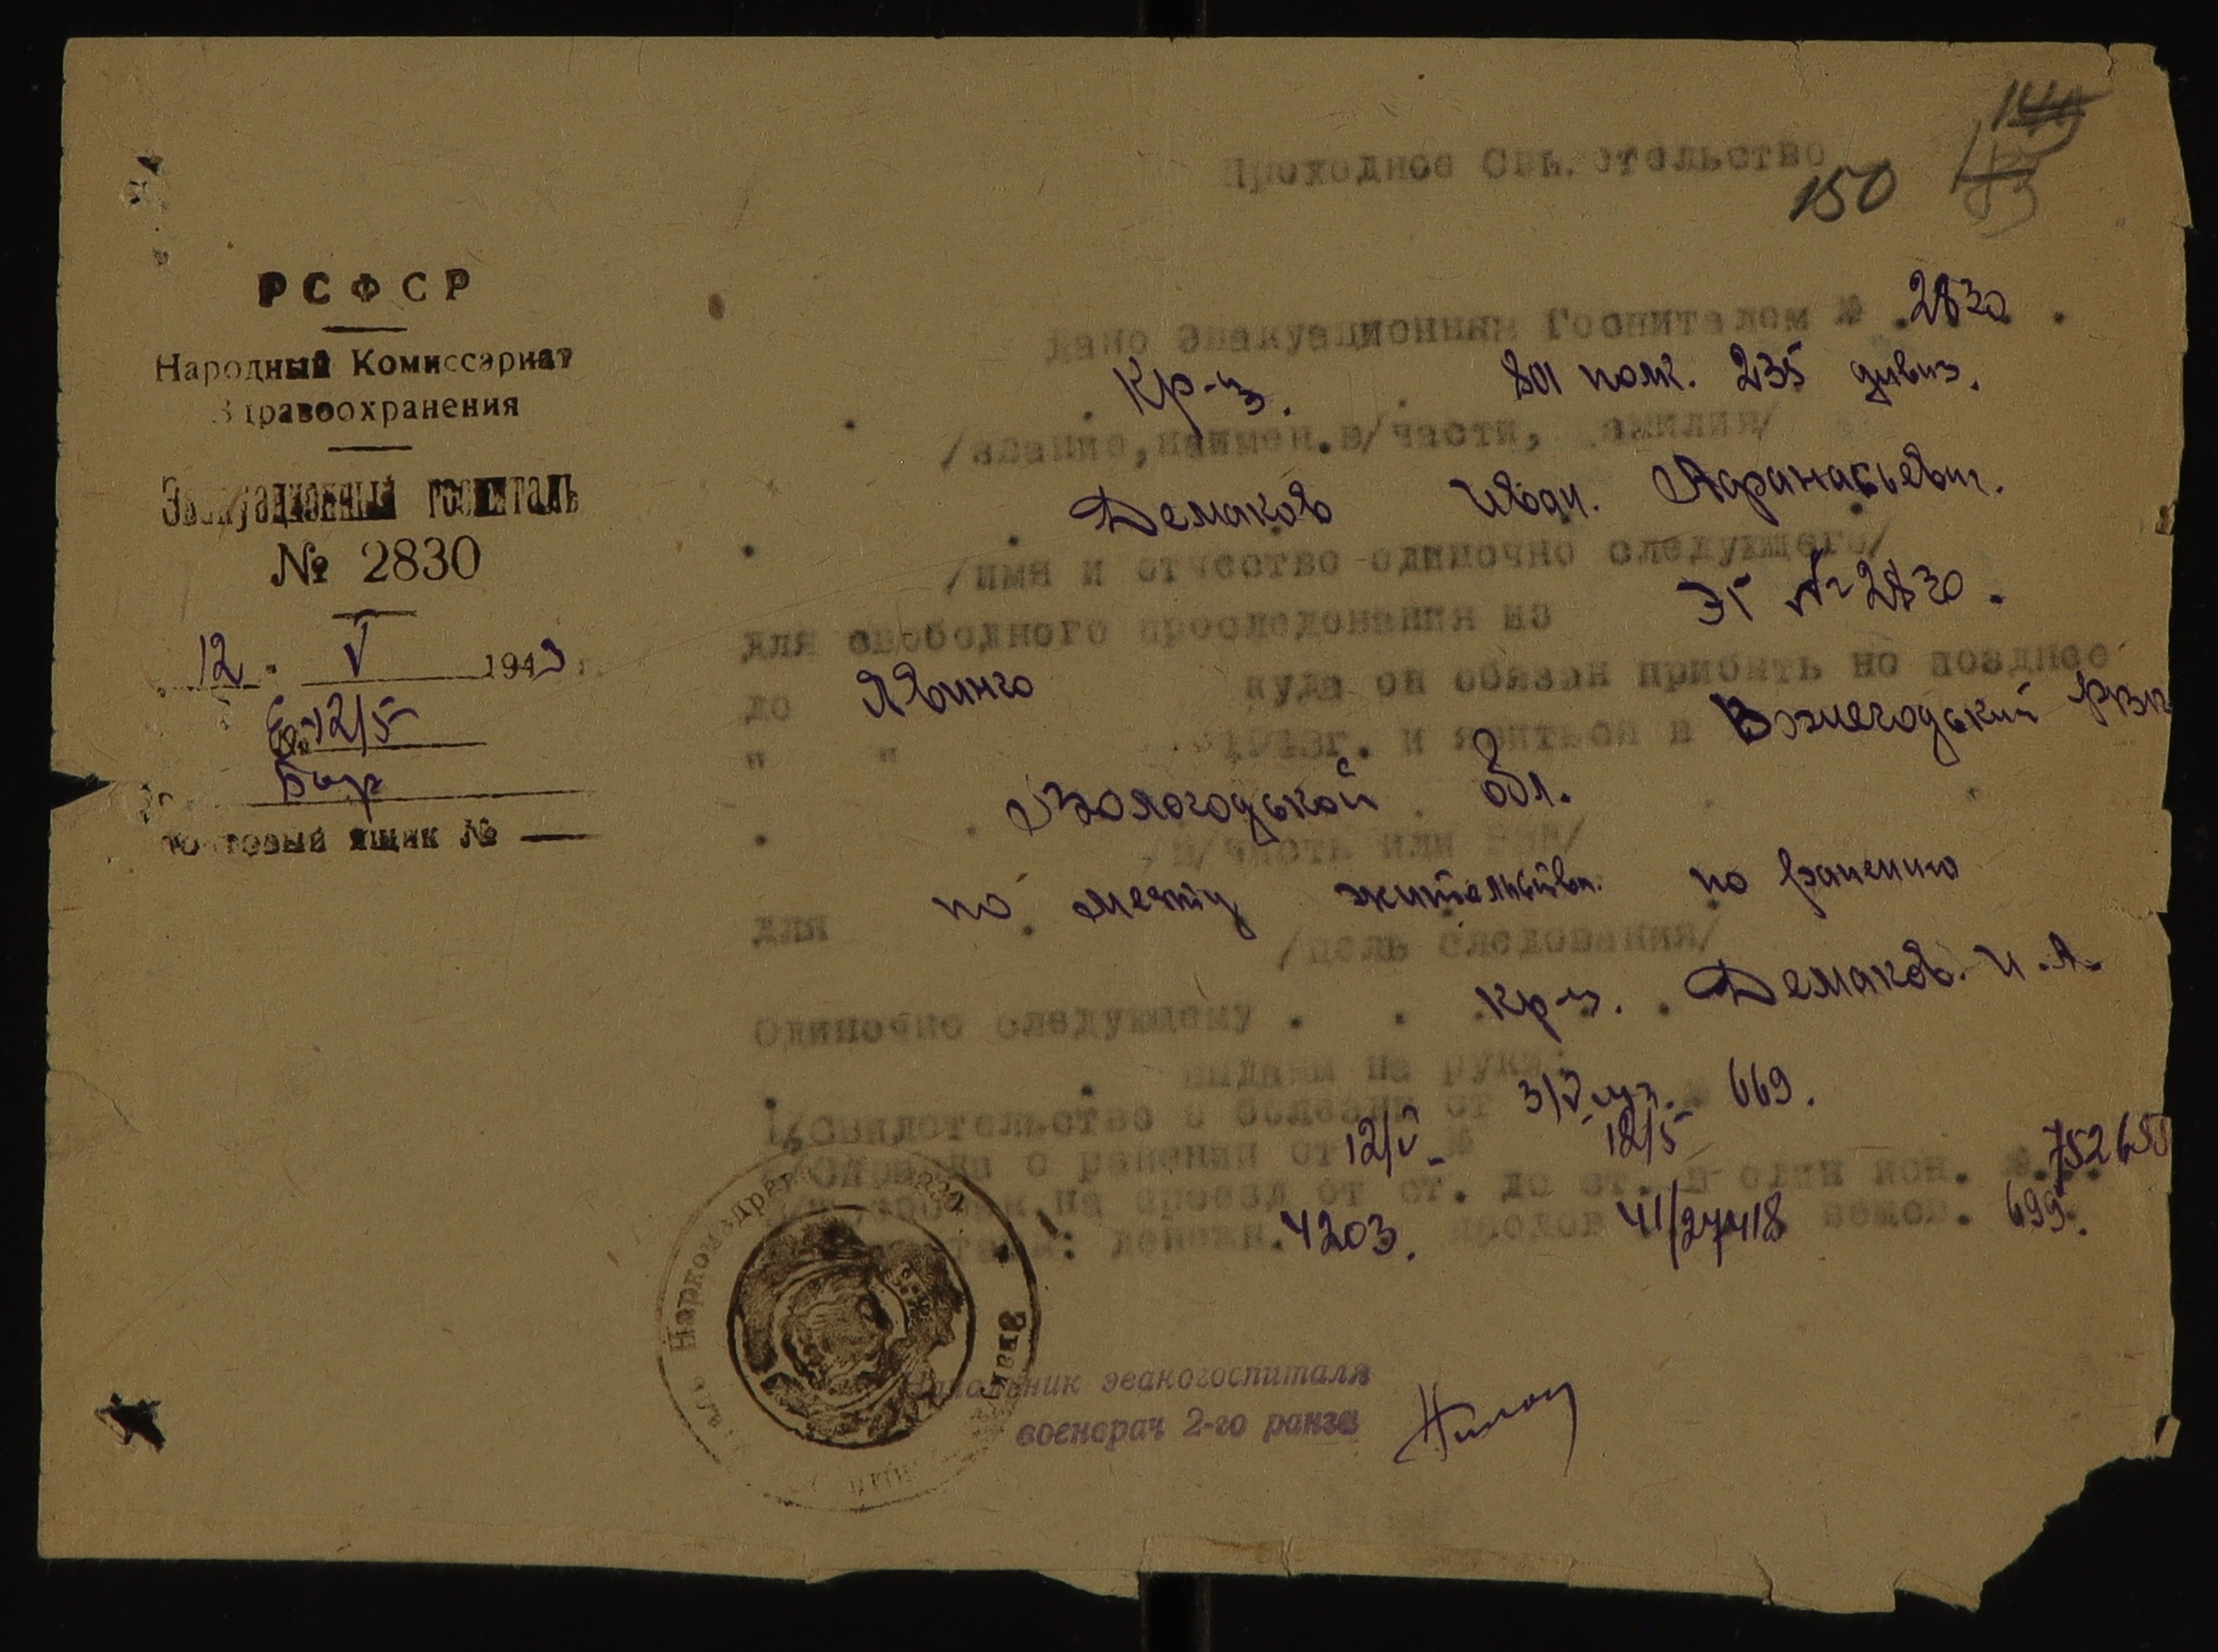 150
Проходное Свидетельство
РСФСР
Народный Комиссариат
Здравоохранения
Эвакуационный госпиталь
№ 2830
12 V 1943 г.
12/5
Почтовый ящик №
Дано Эвакуационным Госпиталем № 2830.
Кр-ц. 801 полк. 235 дивиз.
/звание, наимен. в/части, фамилия/
Демаков Иван. Афанасьевич.
/имя и отчество одиночно следующего/
для свободного проследования из ЭГ № 2830.
до Явинго куда он обязан прибыть не позднее
" " 1943г. и явиться в Вожегодский РВК
Вологодской обл.
/в/часть или РВК/
для по месту жительства. по ранению
/цель следования/
Одиночно следующему Кр-ц. Демаков. И.А.
выданы на руки:
1/Свидетельство о болезни от 3/V № 669.
2/Справка о ранении от 12/V № 12/5
на проезд от ст. до ст. в один кон. №
денежн. 4203. продов 41/27418 вещев. 699.
Начальник эвакогоспиталя
военврач 2-го ранга